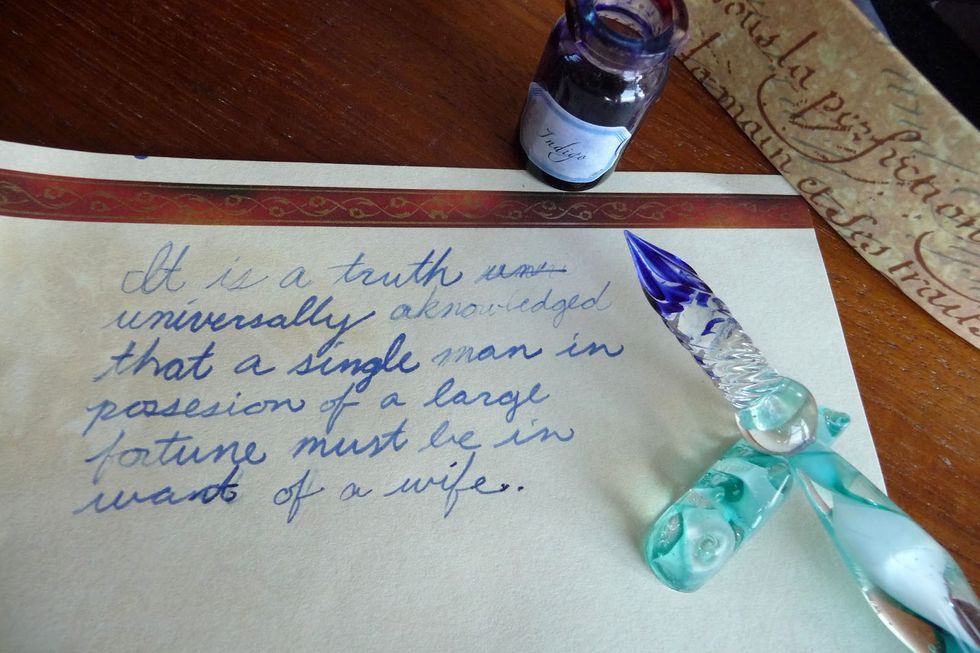 Indigo
vous la perfection
la main et ses
It is a truth un
universally aknowledged
that a single man in
possesion of a large
fortune must be in
want of a wife.